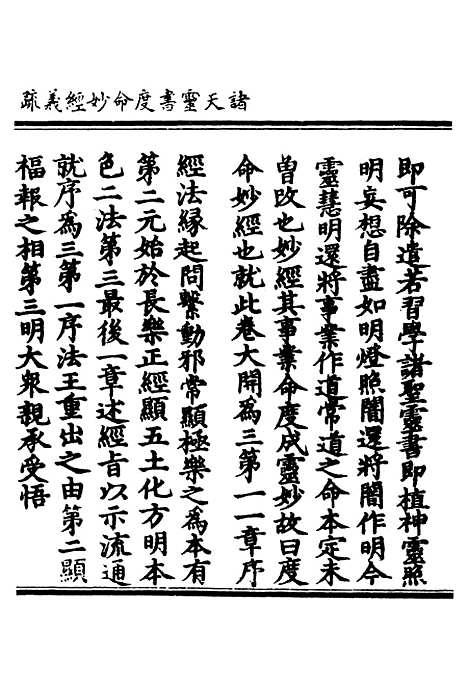 諸天靈書度命妙經義疏
即可除遣若習學諸聖靈書即植神靈照
明妄想自盡如明燈照闇還將闇作明今
靈慧明還將事業作道常道之命本定未
曽改也妙經其事業命度成靈妙故曰度
命妙經也就此卷大開為三第一一章序
經法緣起問繫動邪常顯極樂之為本有
第二元始於長樂正經顯五土化方明本
色二法第三最後一章述經旨以示流通
就序為三第一序法王重出之由第二顯
福報之相第三明大衆親承受悟